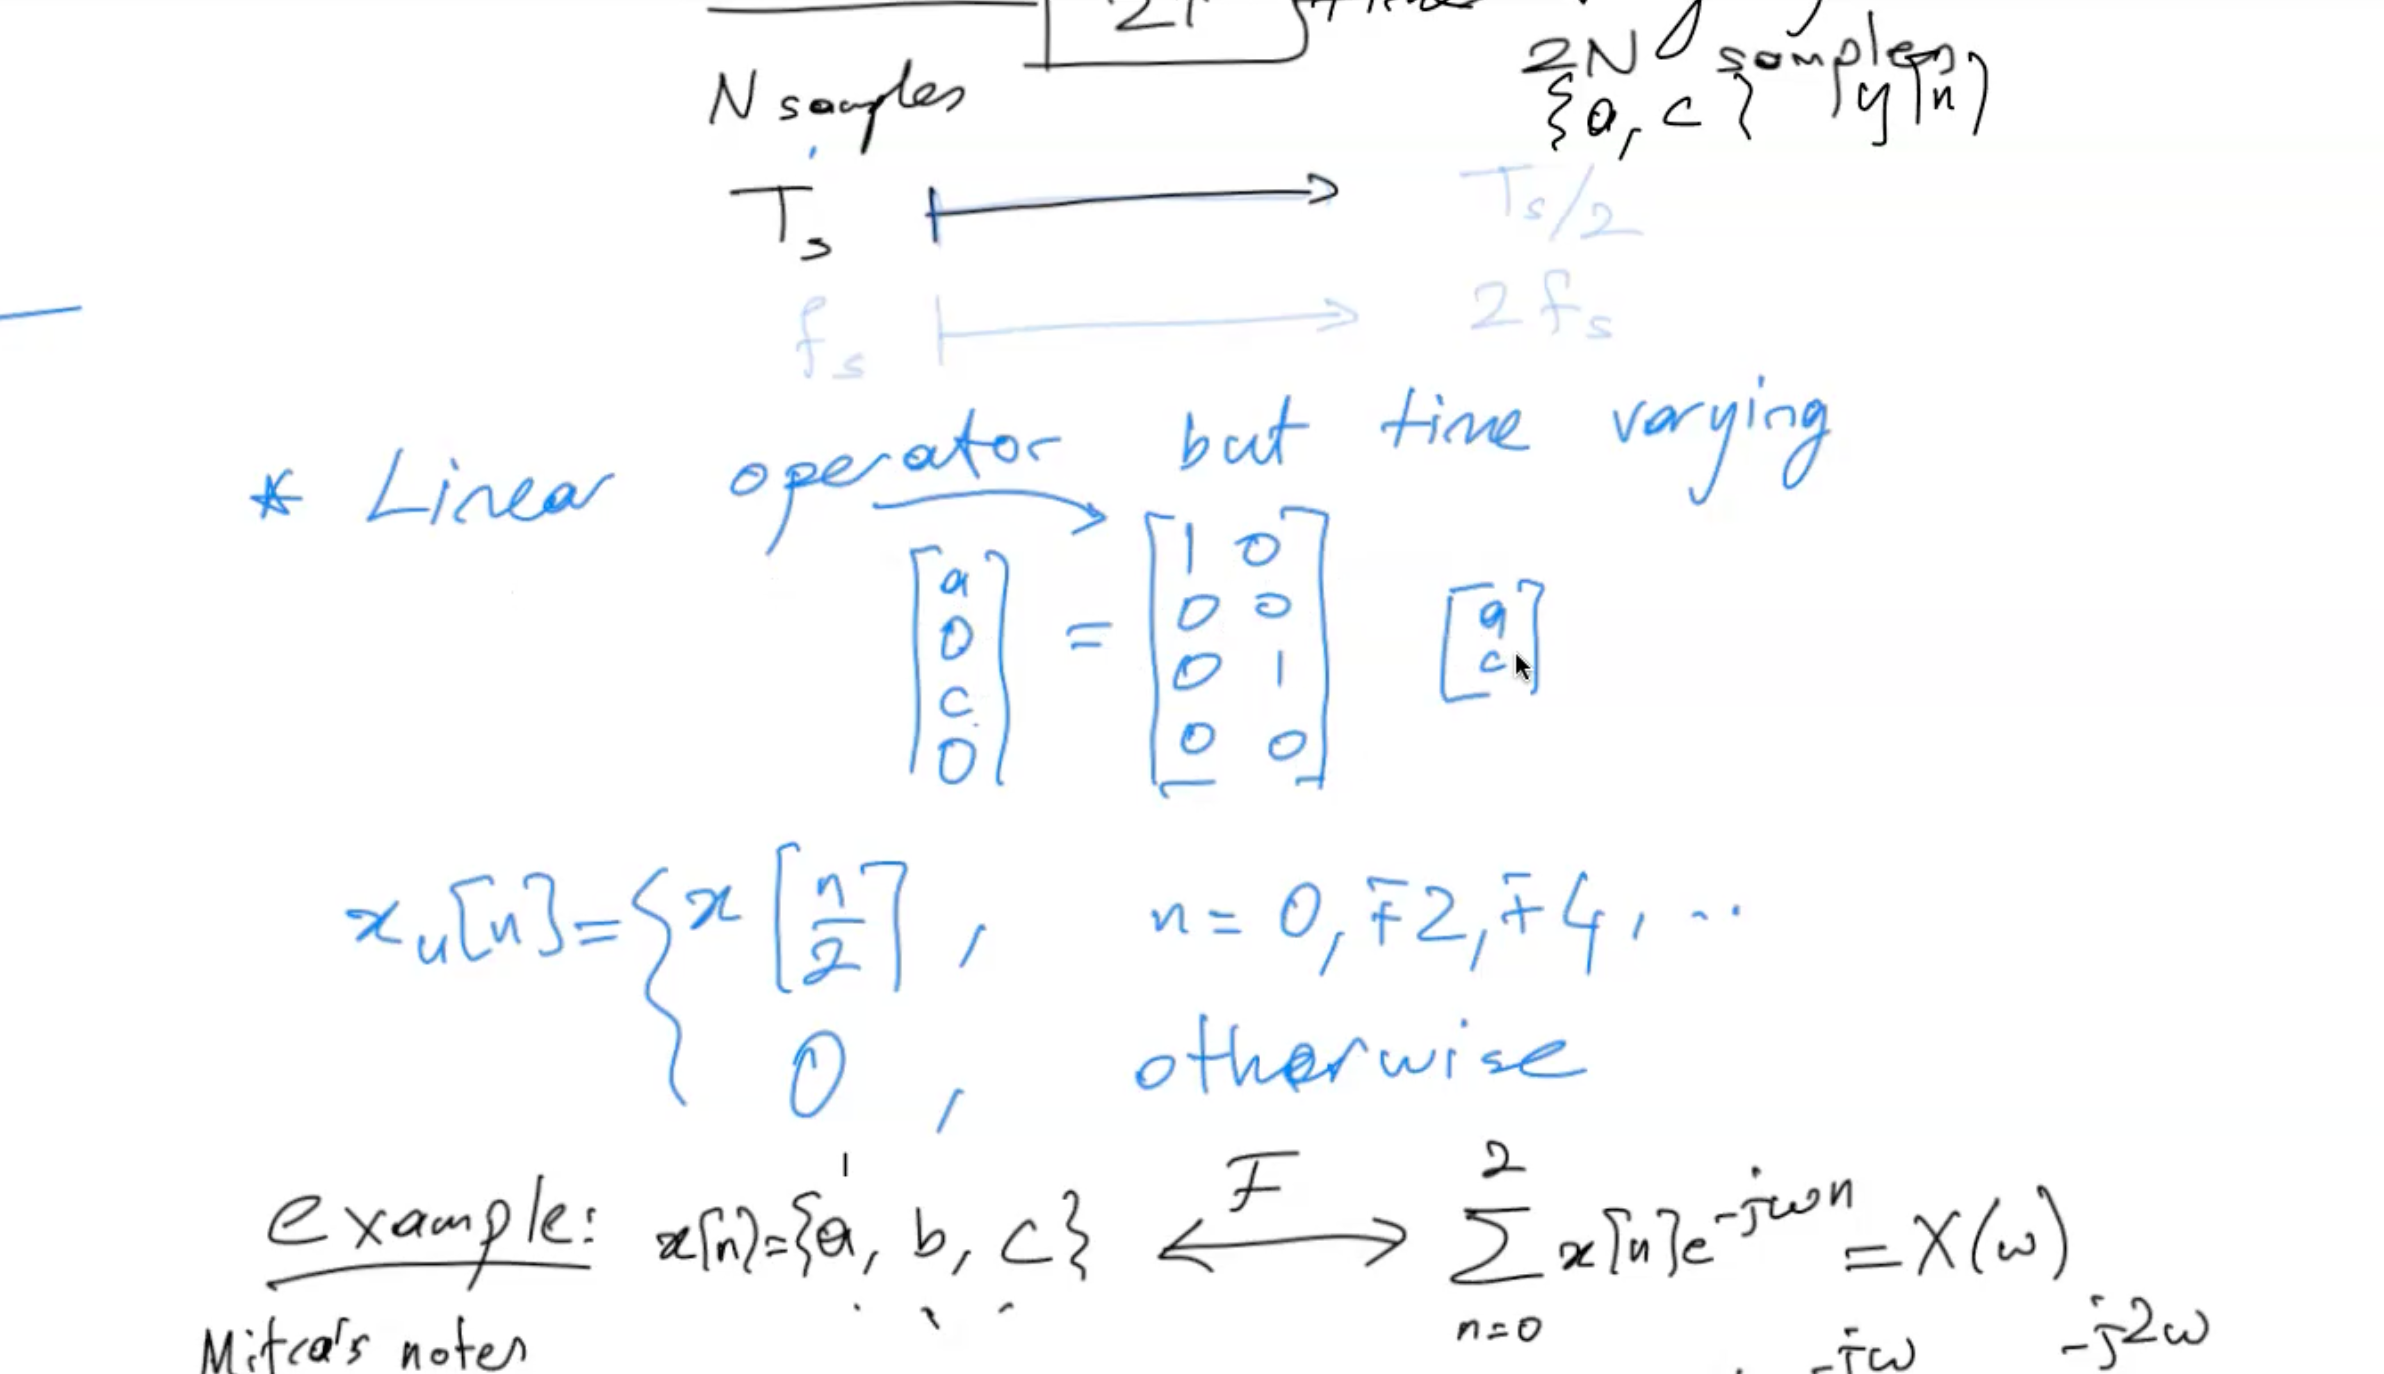 2N samples
N samples {a, c} y[n]
Ts Ts/2
fs 2fs
* Linear operator but time varying
[a 0 c 0] = [1 0; 0 0; 0 1; 0 0] [a c]
xu[n] = { x[n/2], n = 0, ∓2, ∓4, ...
0, otherwise
example: x[n] = {a, b, c} F ∑ n=0 2 x[n]e^-jωn = X(ω)
Mitra's notes -jω -j2ω